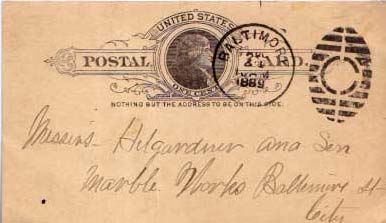 UNITED STATES
POSTAL CARD.
ONE CENT
BALTIMORE
1889
NOTHING BUT THE ADDRESS TO BE ON THIS SIDE.
Messrs Hilgardner and Son
Marble Works Baltimore St
City